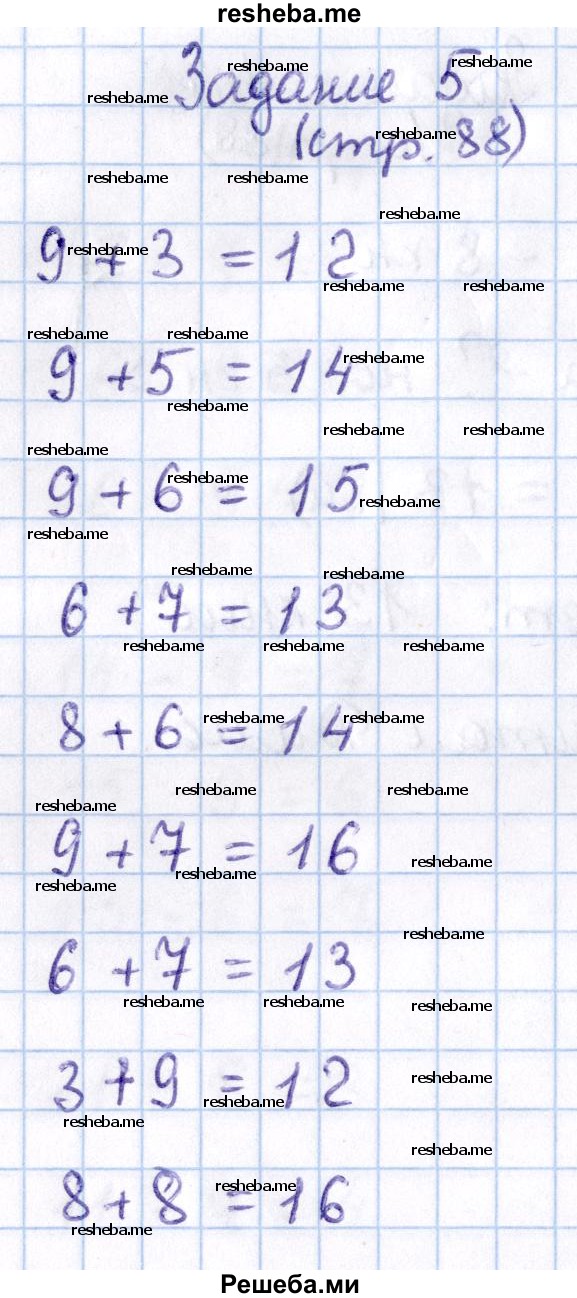 resheba.me
Задание 5
(стр. 88)
9 + 3 = 12
9 + 5 = 14
9 + 6 = 15
6 + 7 = 13
8 + 6 = 14
9 + 7 = 16
6 + 7 = 13
3 + 9 = 12
8 + 8 = 16
Решеба.ми